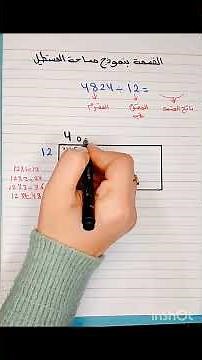 القسمة بنموذج مساحة المستطيل
4824 ÷ 12 =
المقسوم
المقسوم عليه
ناتج القسمة
4 0
12
12×1=12
12×2=24
12×3=36
12×4=48
InShOt